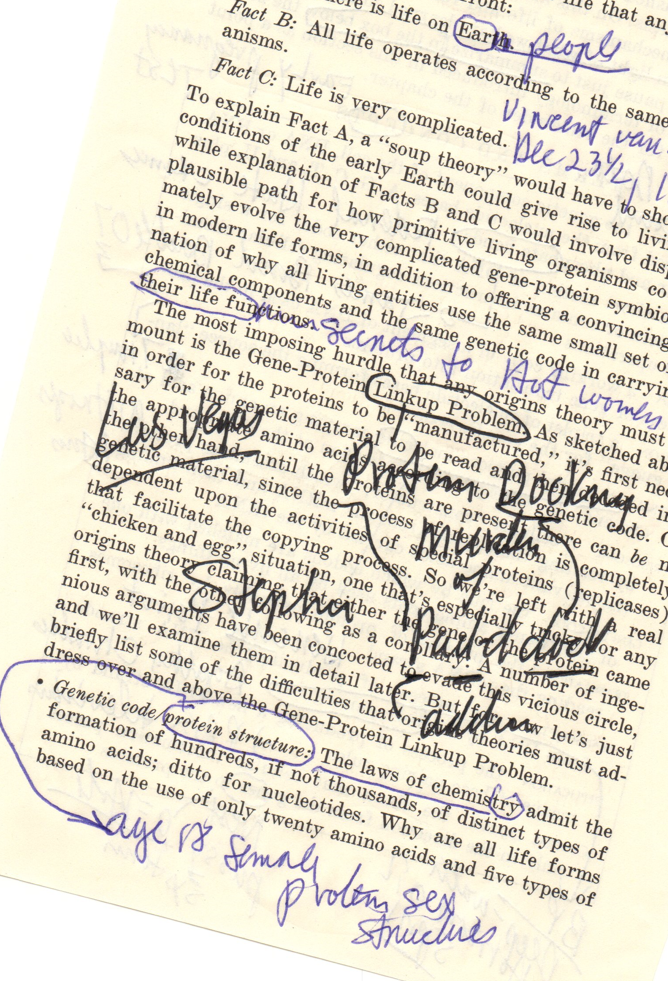 ere is life on Earth. people
Fact B: All life operates according to the same
anisms.
Fact C: Life is very complicated.
Vincent van
Dec 23 1/2, 1
To explain Fact A, a “soup theory” would have to sho
conditions of the early Earth could give rise to livi
while explanation of Facts B and C would involve dis
plausible path for how primitive living organisms co
mately evolve the very complicated gene-protein symbio
in modern life forms, in addition to offering a convincing
nation of why all living entities use the same small set o
chemical components and the same genetic code in carryin
their life functions.
secrets to Hot women
The most imposing hurdle that any origins theory must
mount is the Gene-Protein Linkup Problem. As sketched ab
in order for the proteins to be “manufactured,” it’s first nec
sary for the genetic material to be read and
the amino acids to be genetic code. O
hand, until the proteins are present there can be n
genetic material, since the process of is completely
dependent upon the activities of special proteins (replicases)
that facilitate the copying process. So we’re left with a real
“chicken and egg” situation, one that’s especially for any
origins theory claiming that either the gene or the protein came
first, with the other following as a corollary. A number of inge-
nious arguments have been concocted to evade this vicious circle,
and we’ll examine them in detail later. But for now let’s just
briefly list some of the difficulties that origins theories must ad-
dress over and above the Gene-Protein Linkup Problem.
Las Vegas
Protein Docking
murder
of
Paddock
Stephen
• Genetic code protein structure: The laws of chemistry admit the
formation of hundreds, if not thousands, of distinct types of
amino acids; ditto for nucleotides. Why are all life forms
based on the use of only twenty amino acids and five types of
age of
protein sex
structures